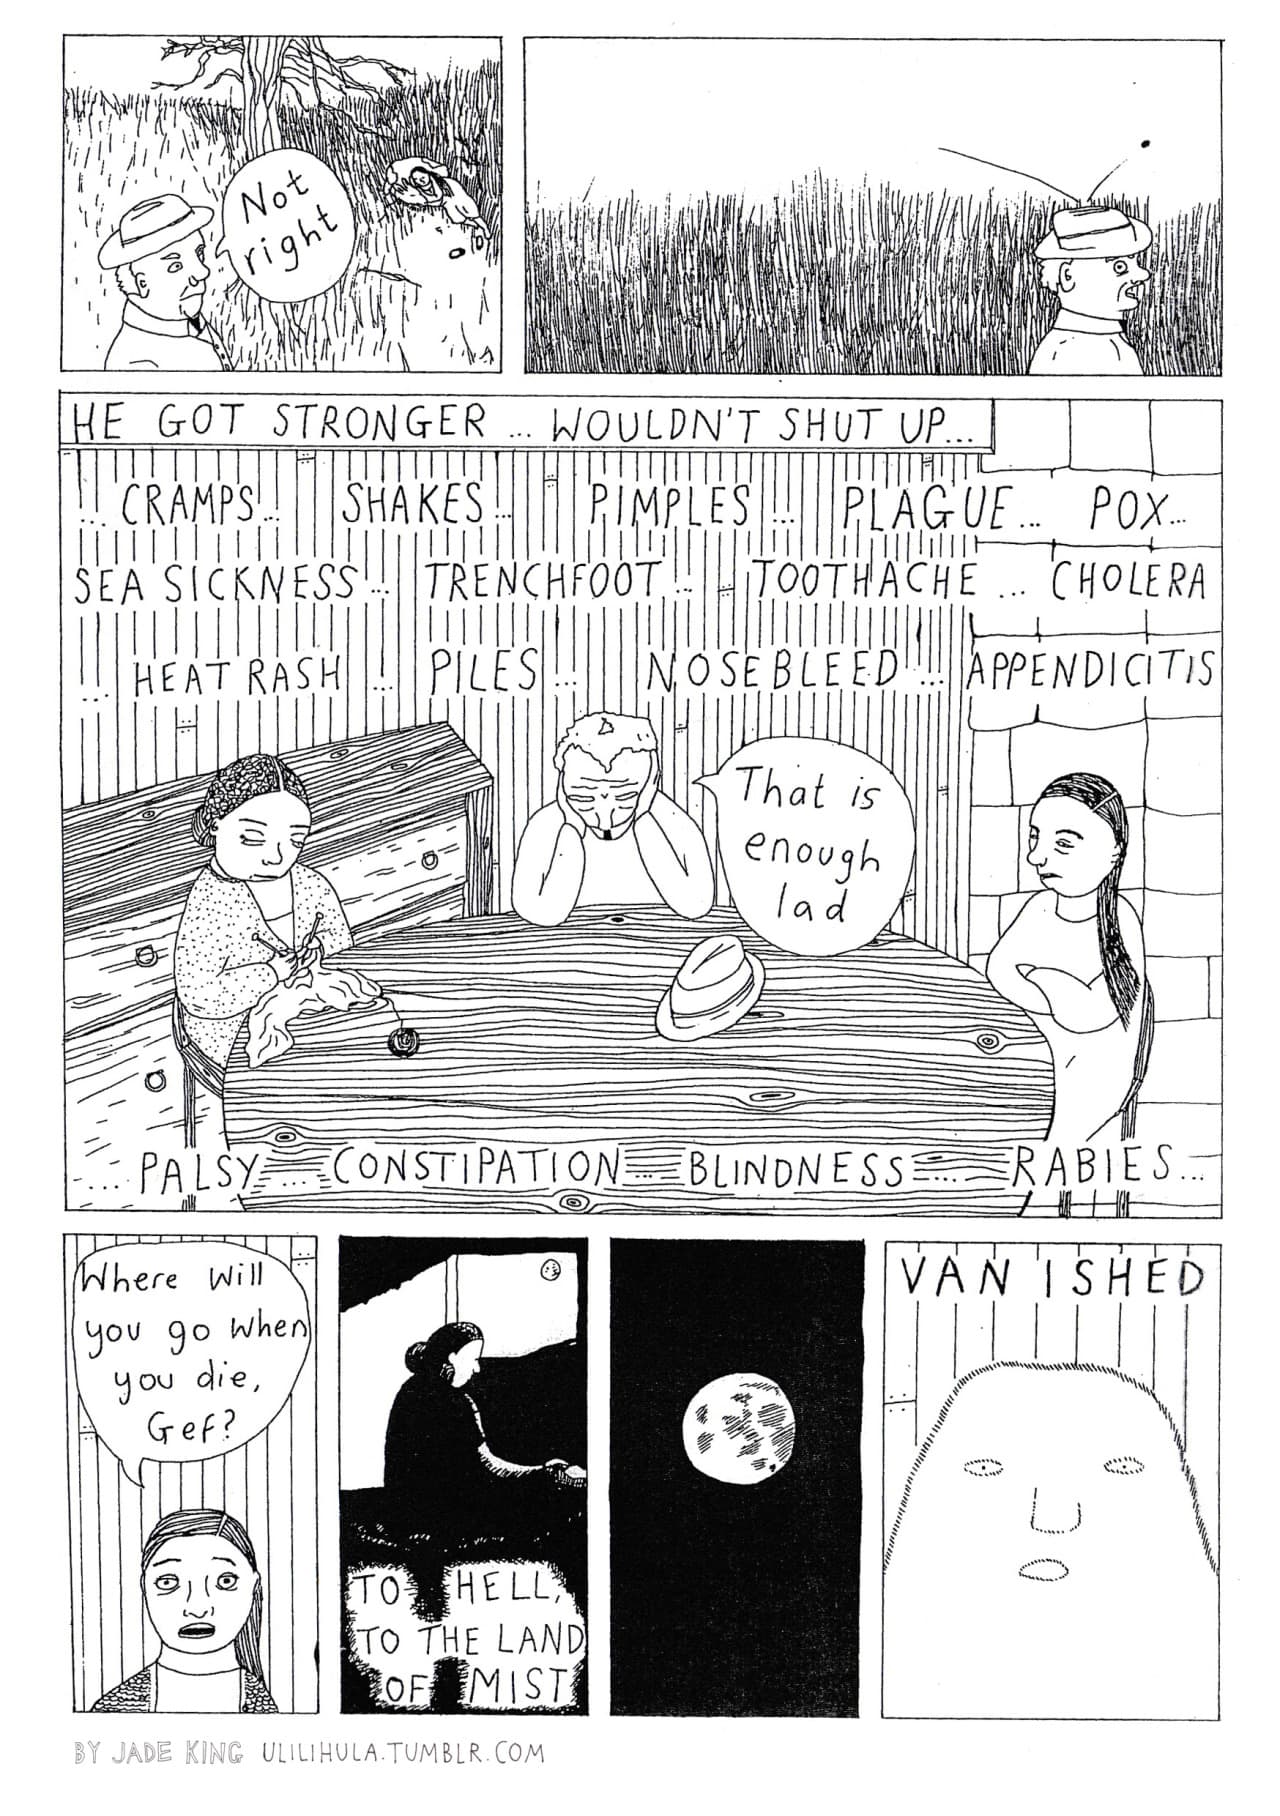 Not
right
HE GOT STRONGER ... WOULDN'T SHUT UP...
... CRAMPS... SHAKES... PIMPLES ... PLAGUE... POX...
SEA SICKNESS... TRENCHFOOT... TOOTHACHE ... CHOLERA
... HEAT RASH ... PILES ... NOSEBLEED ... APPENDICITIS
That is
enough
lad
.... PALSY ... CONSTIPATION ... BLINDNESS ... RABIES...
Where will
you go when
you die,
Gef?
TO HELL,
TO THE LAND
OF MIST
VANISHED
BY JADE KING ULILIHULA.TUMBLR.COM